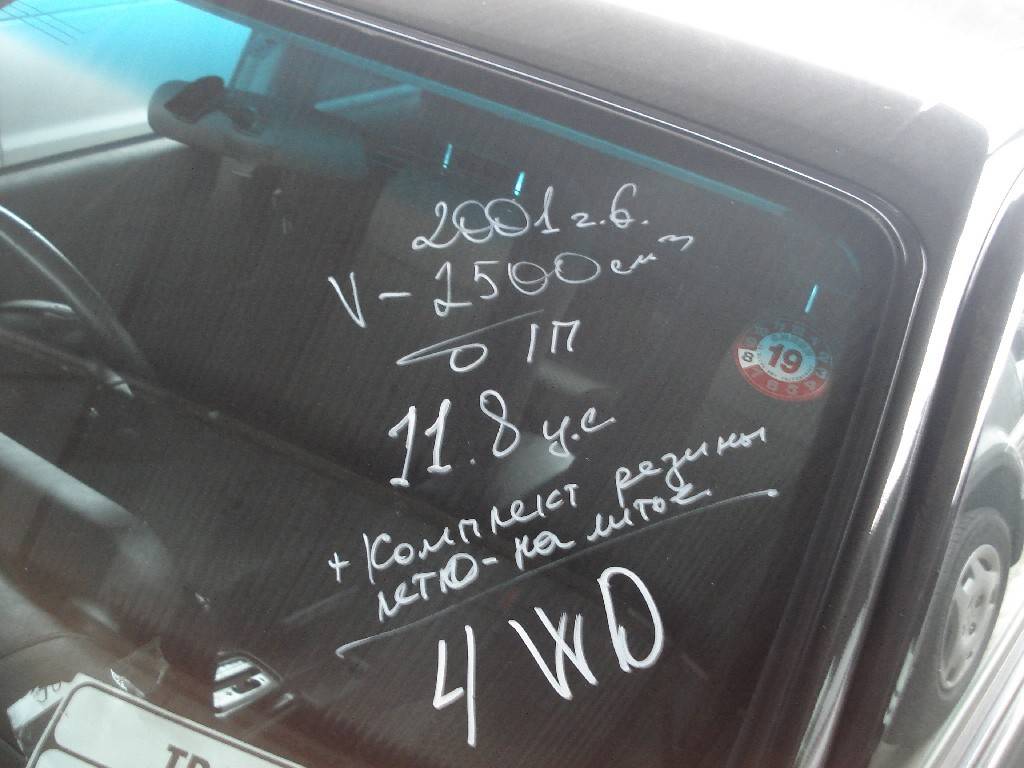 2001 г.в.
V - 2500 см
о 1п
11.8 у.е
+ Комплект резины
лето - на литье
4 WD
8 19
ТР